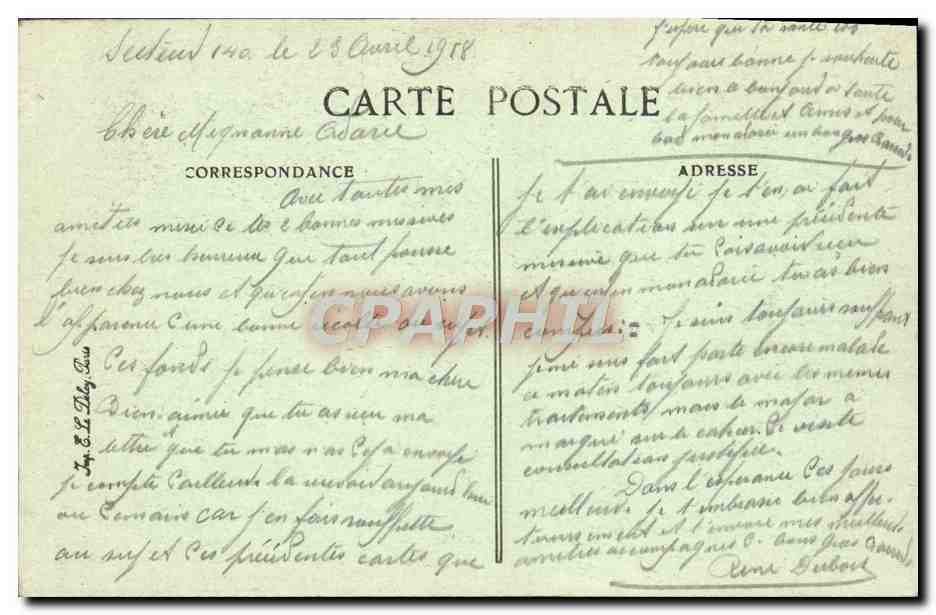 Secteur 140 le 23 Avril 1918
CARTE POSTALE
Chère Mignonne Adorée
CORRESPONDANCE
Avec toutes mes
amitiés merci de tes 2 bonnes missives
je suis très heureux que tout pousse
bien chez nous et qu'enfin nous avons
l'apparence d'une bonne récolte au sujet
Ces fonds je pense bien ma chère
Bien aimée que tu as reçu ma
lettre que tu m'as envoyé
je compte d'ailleurs la aujourd'hui
ou demain car j'en fais
au sujet des précédentes cartes que
ADRESSE
je t'ai envoyé je t'en ai fait
l'explication sur une précédente
missive que tu dois avoir reçu
et qu'enfin mon adorée tu as bien
compris = Je suis toujours souffrant
je me suis fait porté encore malade
ce matin toujours avec les mêmes
traitements mais le major a
marqué sur le cahier de visite
consultation justifiée.
Dans l'espérance des jours
meilleurs je t'embrasse bien affec-
tueusement et t'envoie mes meilleures
amitiés accompagnées de bons gros
René Dubois
j'espère que ta santé est
toujours bonne je souhaite
bien le bonjour à toute
la famille et Amis et pour
toi mon adorée un bon gros
Imp. E. Le Deley, Paris
CPAPHIL